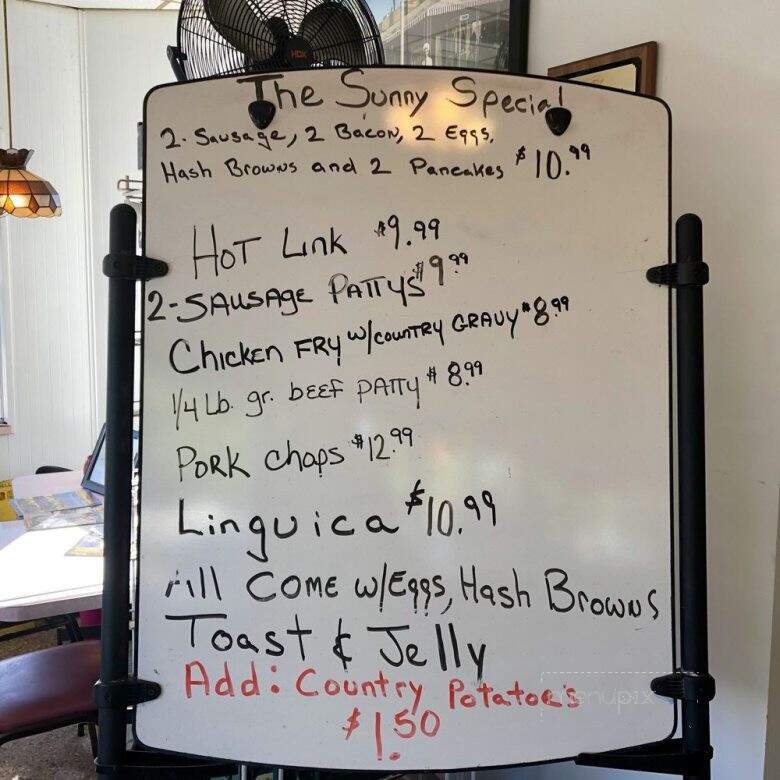 HDX
The Sunny Special
2. Sausage, 2 Bacon, 2 Eggs,
Hash Browns and 2 Pancakes $10.99
Hot Link $9.99
2-Sausage Pattys $9.99
Chicken Fry w/country Gravy $8.99
1/4 Lb. gr. beef patty $8.99
Pork chops $12.99
Linguica $10.99
All come w/Eggs, Hash Browns
Toast & Jelly
Add: Country Potatoes
$1.50
menupix